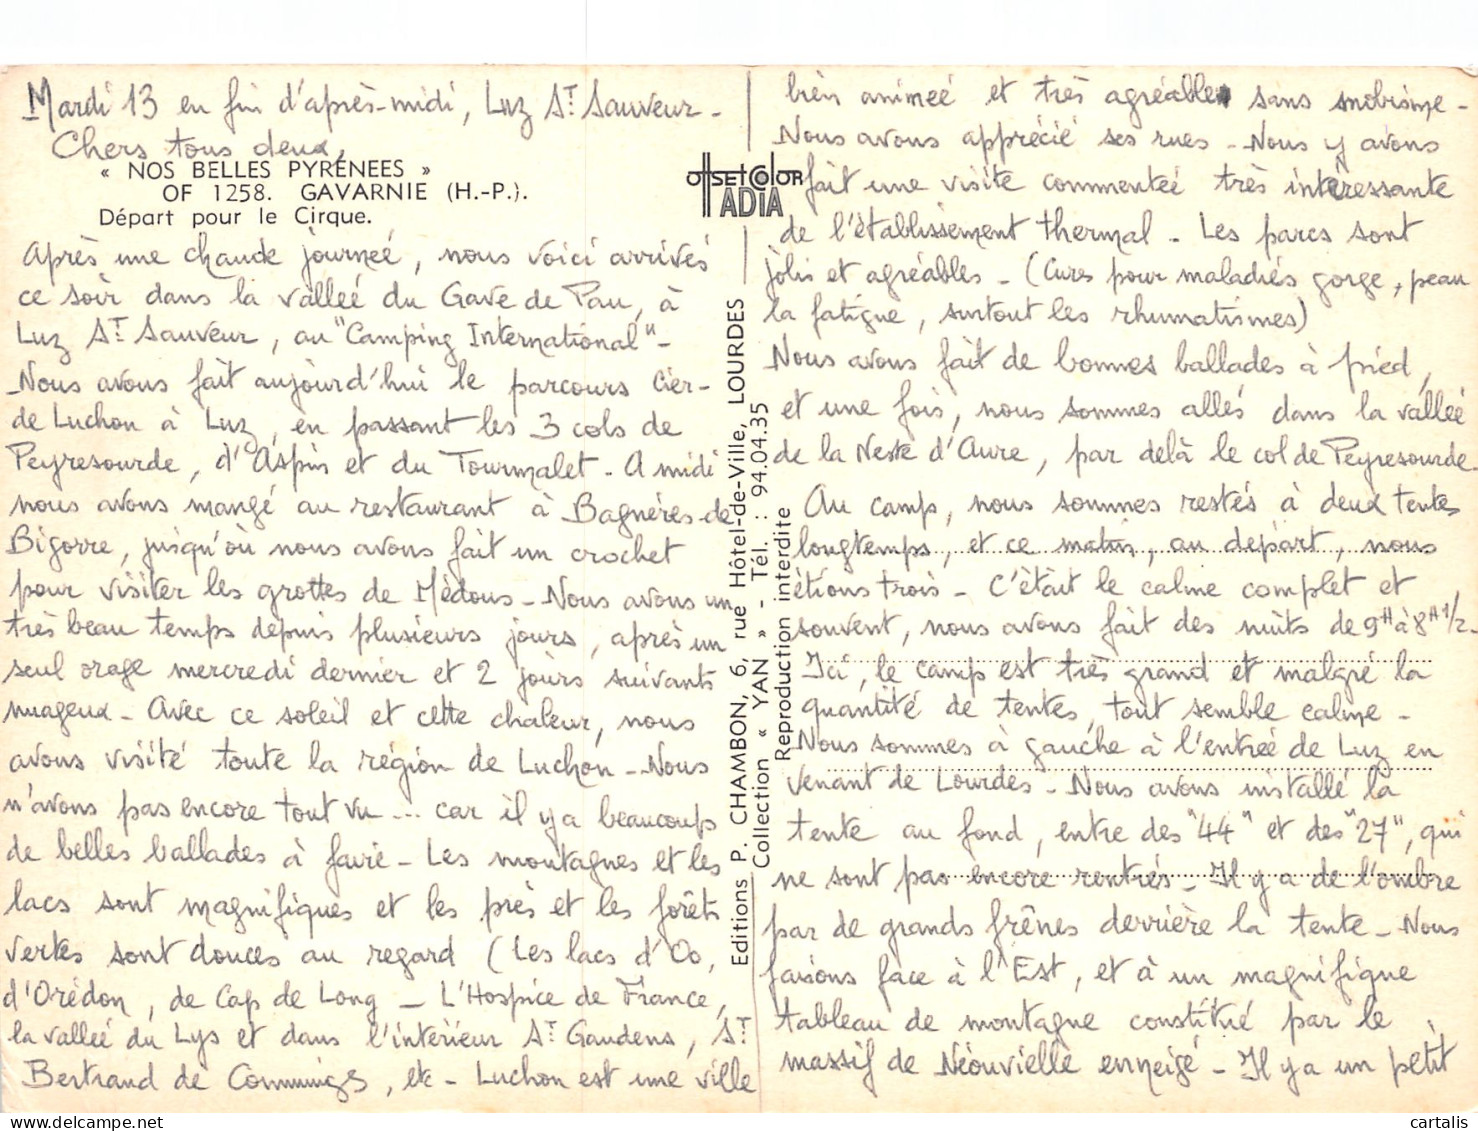 Mardi 13 en fin d'après-midi, Luz St Sauveur -
Chers tous deux,
« NOS BELLES PYRÉNEES »
OF 1258. GAVARNIE (H.-P.).
Départ pour le Cirque.
Après une chaude journeé, nous voici arrivés
ce soir dans la valleé du Gave de Pau, à
Luz St Sauveur, au "Camping International" -
Nous avons fait aujourd'hui le parcours Cier-
de Luchon à Luz, en passant les 3 cols de
Peyresourde, d'Aspin et du Tourmalet - A midi
nous avons mangé au restaurant à Bagnères-de
Bigorre, jusqu'où nous avons fait un crochet
pour visiter les grottes de Médous - Nous avons un
très beau temps depuis plusieurs jours, après un
seul orage mercredi dernier et 2 jours suivants
nuageux - Avec ce soleil et cette chaleur, nous
avons visité toute la région de Luchon - Nous
n'avons pas encore tout vu ... car il y a beaucoup
de belles ballades à faire - Les montagnes et les
lacs sont magnifiques et les près et les forêts
vertes sont douces au regard (Les lacs d'Oo,
d'Orédon, de Cap de Long - L'Hospice de France,
la valleé du Lys et dans l'intérieur St Gaudens, St
Bertrand de Comminges, etc - Luchon est une ville
offset color
ADIA
Editions P. CHAMBON, 6, rue Hôtel-de-Ville, LOURDES
Collection « YAN » - Tél. : 94.04.35
Reproduction interdite
bien animeé et très agréable sans snobisme -
Nous avons apprécié ses rues - Nous y avons
fait une visite commenteé très intéressante
de l'établissement thermal - Les parcs sont
jolis et agréables - (Cures pour maladies gorge, peau
la fatigue, surtout les rhumatismes)
Nous avons fait de bonnes ballades à pied,
et une fois, nous sommes allés dans la valleé
de la Neste d'Aure, par delà le col de Peyresourde -
Au camp, nous sommes restés à deux tentes
longtemps, et ce matin, au départ, nous
étions trois - C'était le calme complet et
souvent, nous avons fait des nuits de 9H à 8H1/2 -
Ici, le camp est très grand et malgré la
quantité de tentes, tout semble calme -
Nous sommes à gauche à l'entreé de Luz en
venant de Lourdes - Nous avons installé la
tente au fond, entre des "44" et des "27", qui
ne sont pas encore rentrés - Il y a de l'ombre
par de grands frênes derrière la tente - Nous
faisons face à l'Est, et à un magnifique
tableau de montagne constitué par le
massif de Néouvielle enneigé - Il y a un petit
cartalis.com